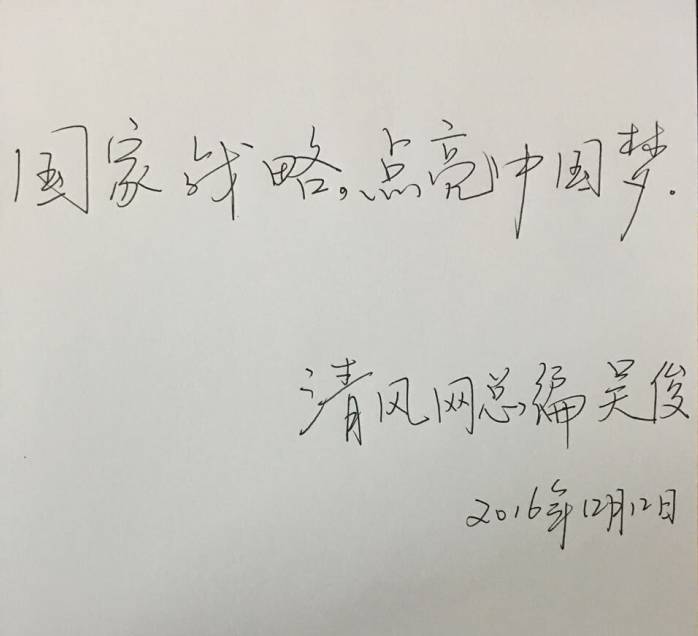 国家战略,点亮中国梦.
清风网总编吴俊
2016年12月12日